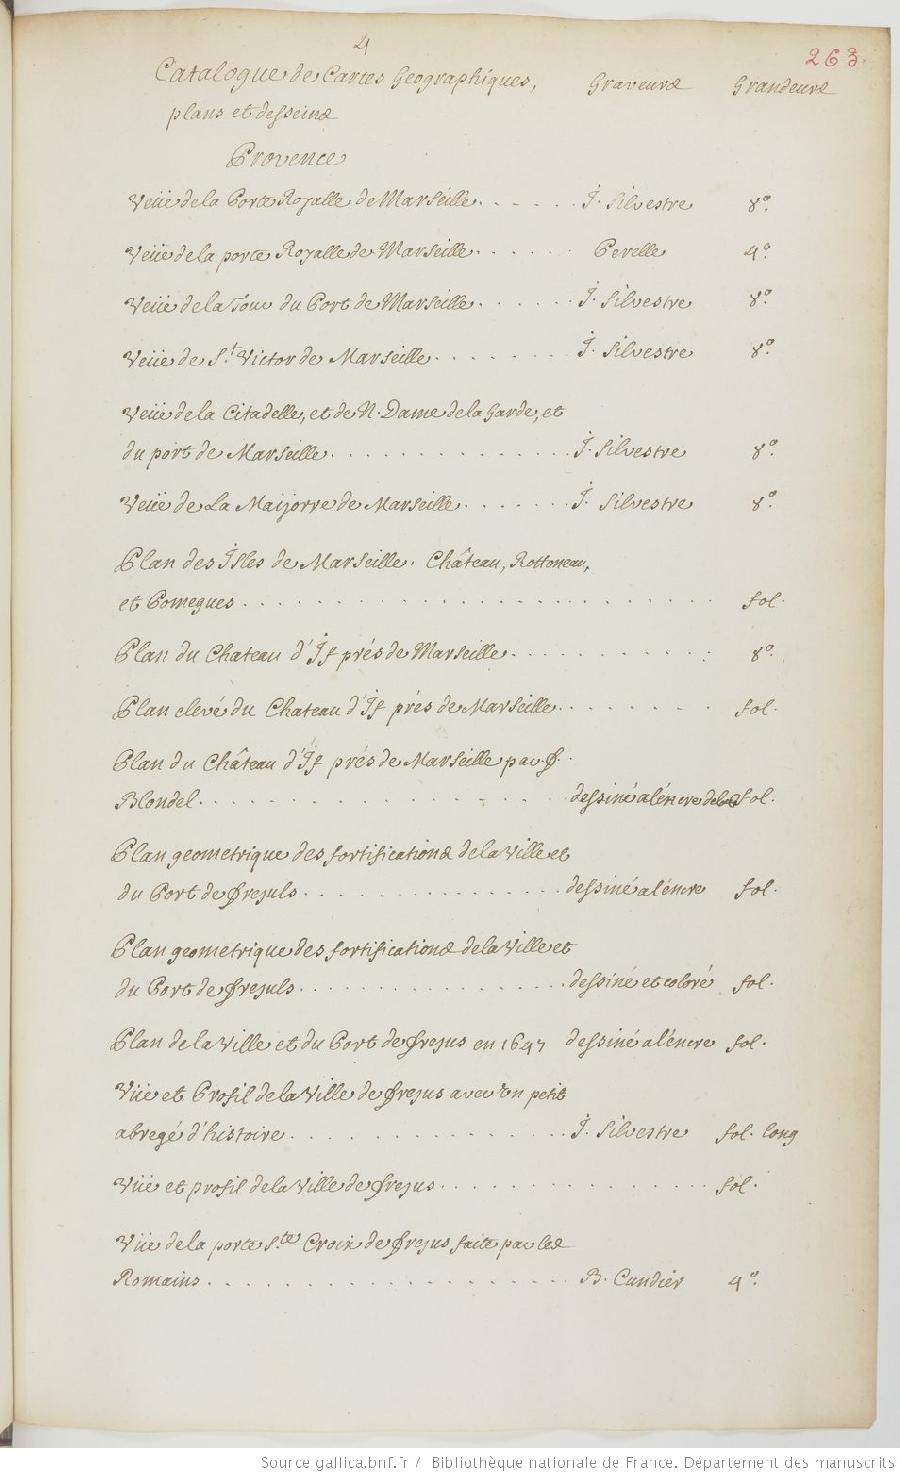 4
263.
Catalogue de Cartes Geographiques, Graveurs Grandeurs
plans et desseins
Provence
Veüe de la Porte Royalle de Marseille. . . . . . I. Silvestre 8.º
Veüe de la porte Royalle de Marseille. . . . . . Perelle 4.º
Veüe de la Tour du Port de Marseille. . . . . . I. Silvestre 8.º
Veüe de S.t Victor de Marseille. . . . . . . . I. Silvestre 8.º
Veüe de la Citadelle, et de N. Dame de la Garde, et
du port de Marseille. . . . . . . . . . . . . I. Silvestre 8.º
Veüe de La Maijorre de Marseille. . . . . . . I. Silvestre 8.º
Plan des Isles de Marseille. Château, Rottoneau,
et Pomegues. . . . . . . . . . . . . . . . . . . . . . . fol.
Plan du Chateau d'If prés de Marseille. . . . . . . . . . . 8.º
Plan elevé du Chateau d'If prés de Marseille. . . . . . . . fol.
Plan du Château d'If prés de Marseille par f.
Blondel. . . . . . . . . . . . . . . . . . dessiné a l'éncre de la fol.
Plan geometrique des fortifications de la Ville et
du Port de Frejuls. . . . . . . . . . . . . . dessiné a l'éncre fol.
Plan geometrique des fortifications de la Ville et
du Port de Frejuls. . . . . . . . . . . . . . dessiné et coloré fol.
Plan de la Ville et du Port de Frejus en 1647 dessiné a l'éncre fol.
Vüe et Profil de la Ville de Frejus avec un petit
abregé d'histoire. . . . . . . . . . . . . . I. Silvestre fol. long
Vüe et profil de la Ville de Frejus. . . . . . . . . . . . . . fol.
Vüe de la porte S.te Croix de Frejus faite par les
Romains. . . . . . . . . . . . . . . . . . . B. Cundier 4.º
Source gallica.bnf.fr / Bibliothèque nationale de France. Département des manuscrits